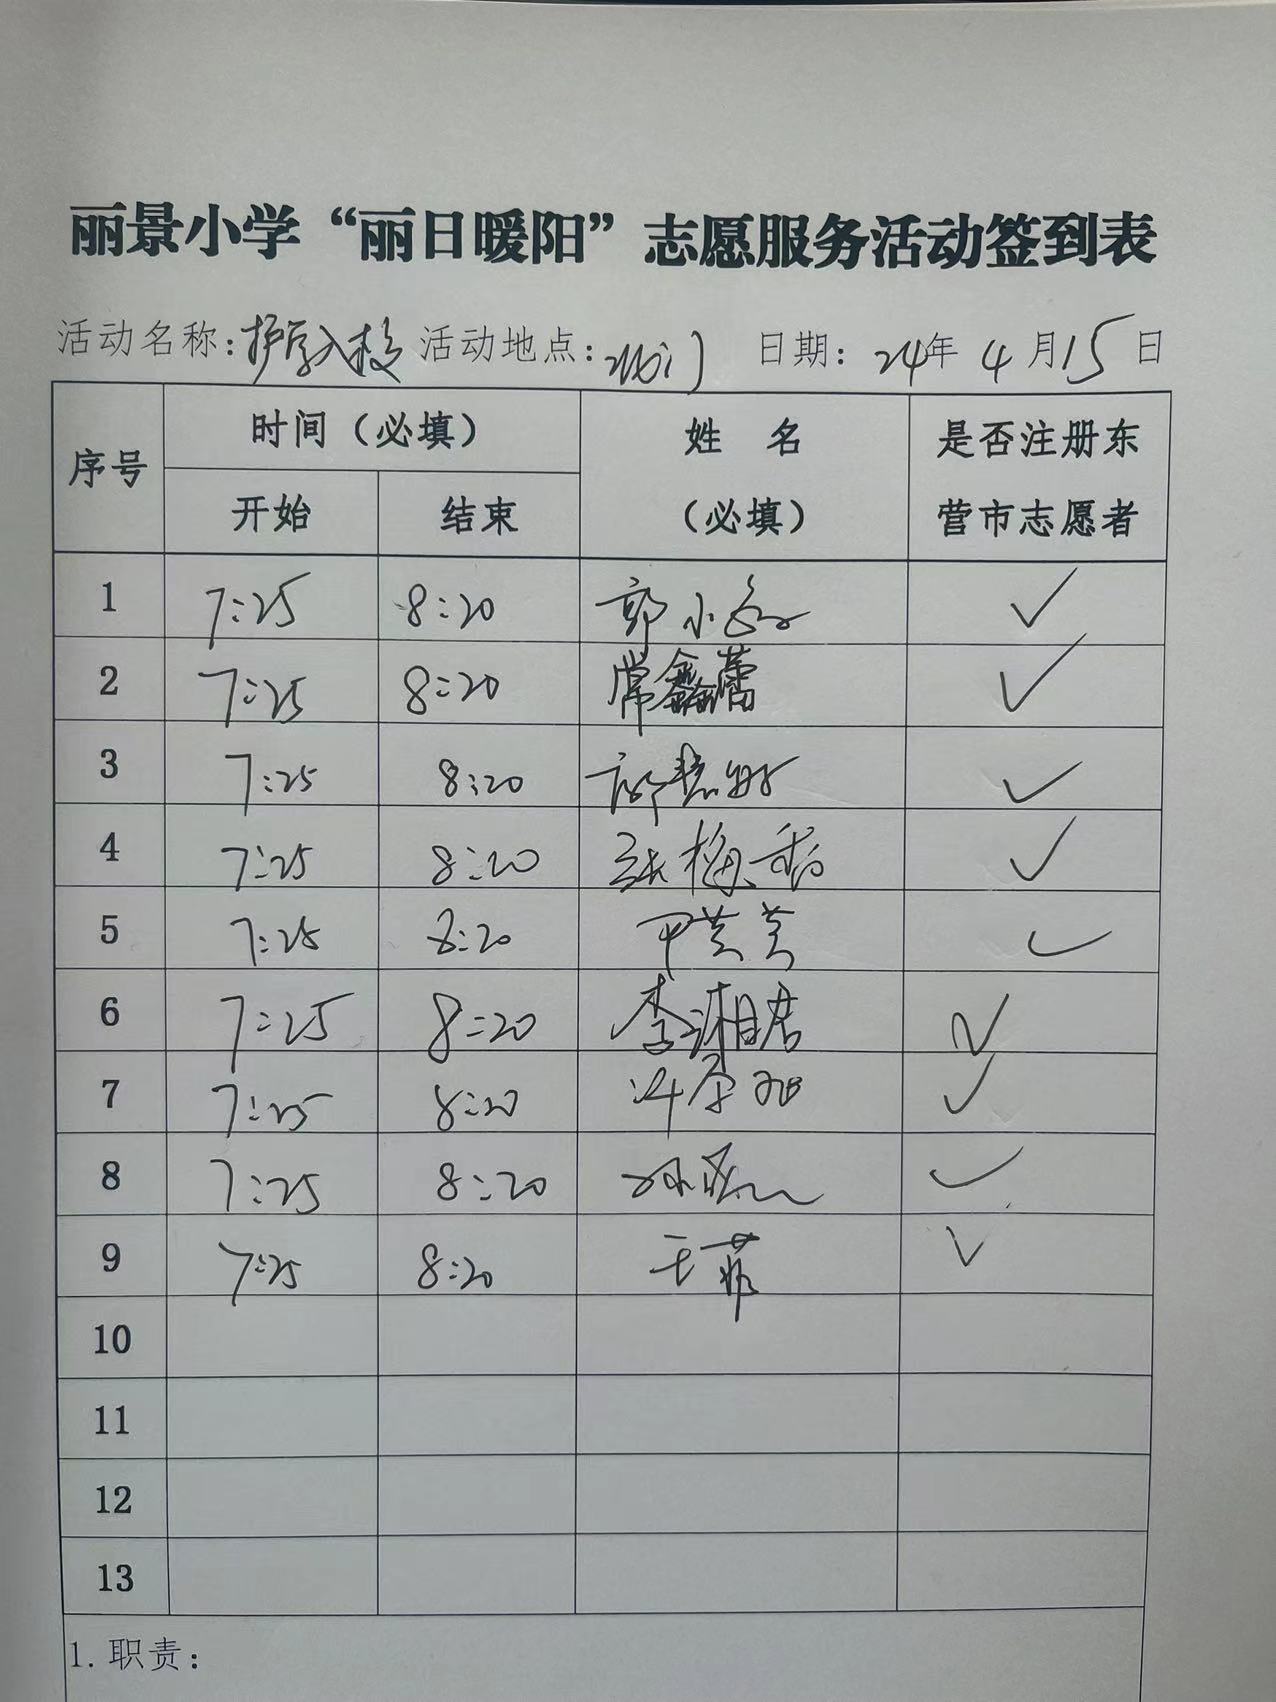 丽景小学“丽日暖阳”志愿服务活动签到表
活动名称:护学入校 活动地点: 日期: 24年4月15日
序号 时间(必填) 姓 名(必填) 是否注册东营市志愿者
开始 结束
1 7:25 8:20 郭小 ✓
2 7:25 8:20 常鑫蕾 ✓
3 7:25 8:20 ✓
4 7:25 8:20 张梅香 ✓
5 7:25 8:20 ✓
6 7:25 8:20 李湘君 ✓
7 7:25 8:20 ✓
8 7:25 8:20 ✓
9 7:25 8:20 王菲 ✓
10
11
12
13
1.职责: